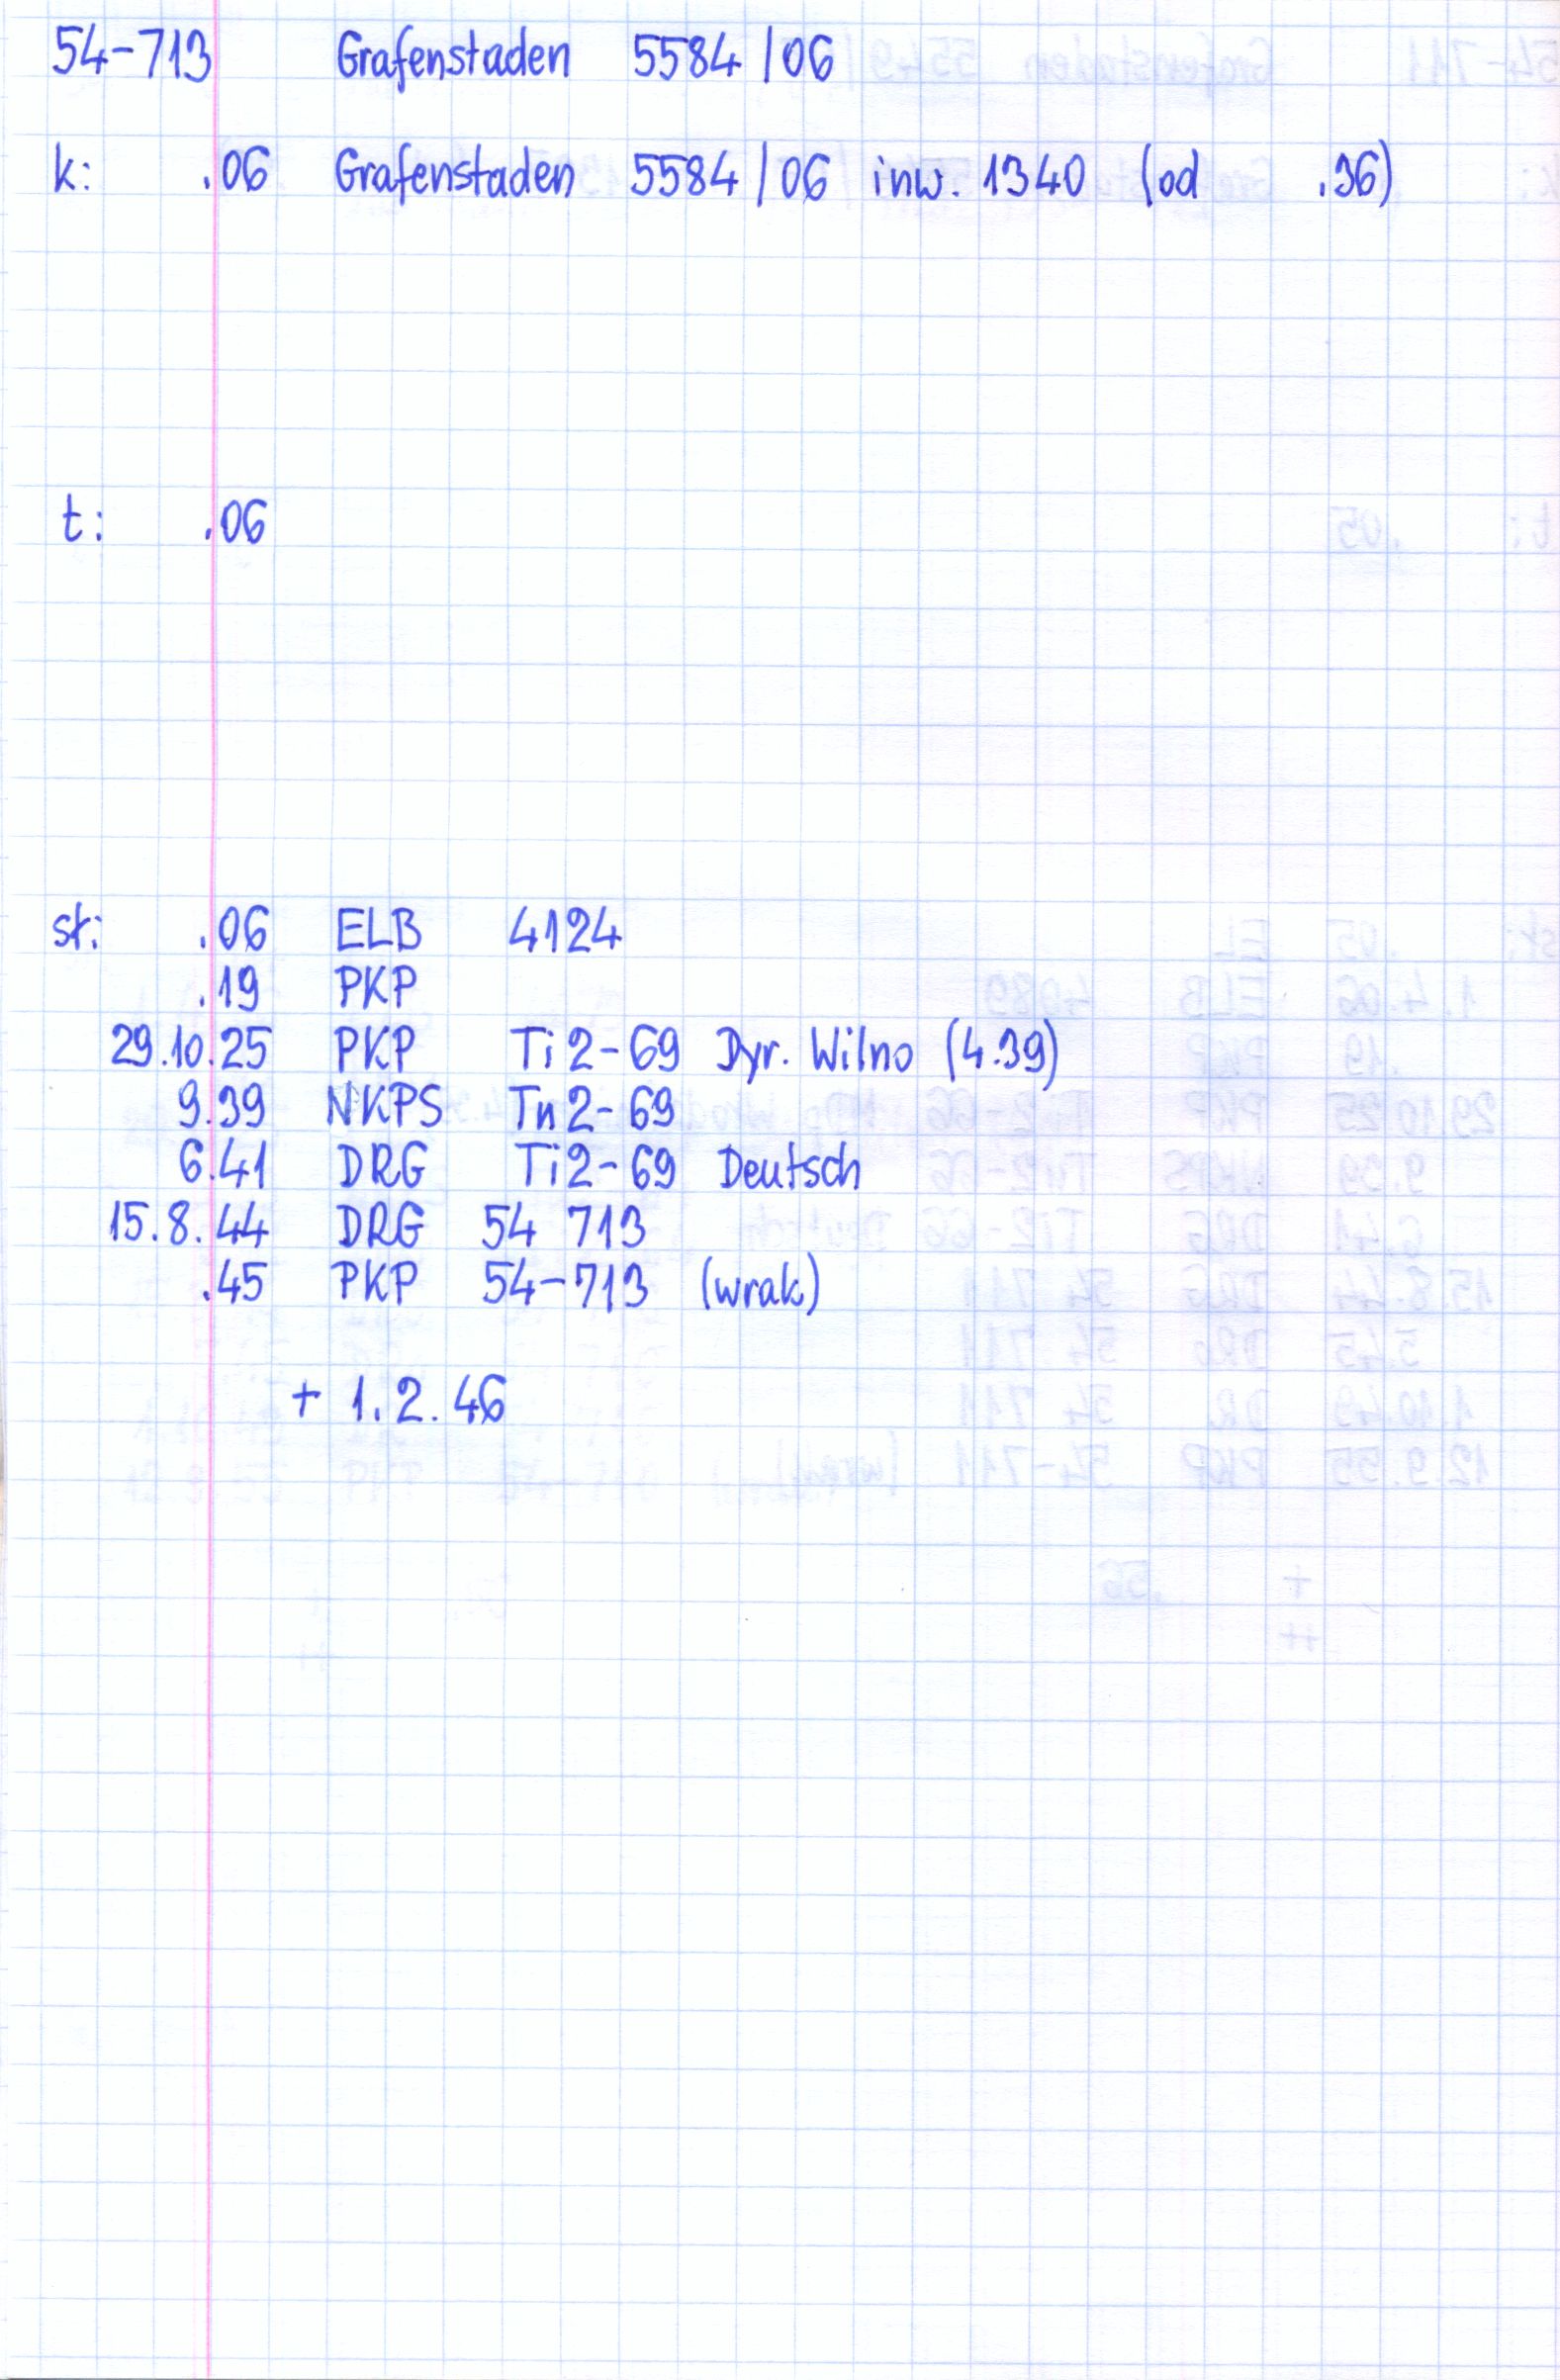 54-713 Grafenstaden 5584/06
k: .06 Grafenstaden 5584/06 inw. 1340 (od .36)
t: .06
st: .06 ELB 4124
.19 PKP
29.10.25 PKP Ti2-69 Dyr. Wilno (4.39)
9.39 NKPS Tn2-69
6.41 DRG Ti2-69 Deutsch
15.8.44 DRG 54 713
.45 PKP 54-713 (wrak)
+ 1.2.46